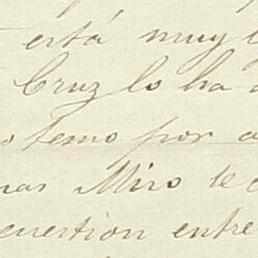 está muy
Cruz lo ha
temo por
Miro le
cuestion entre